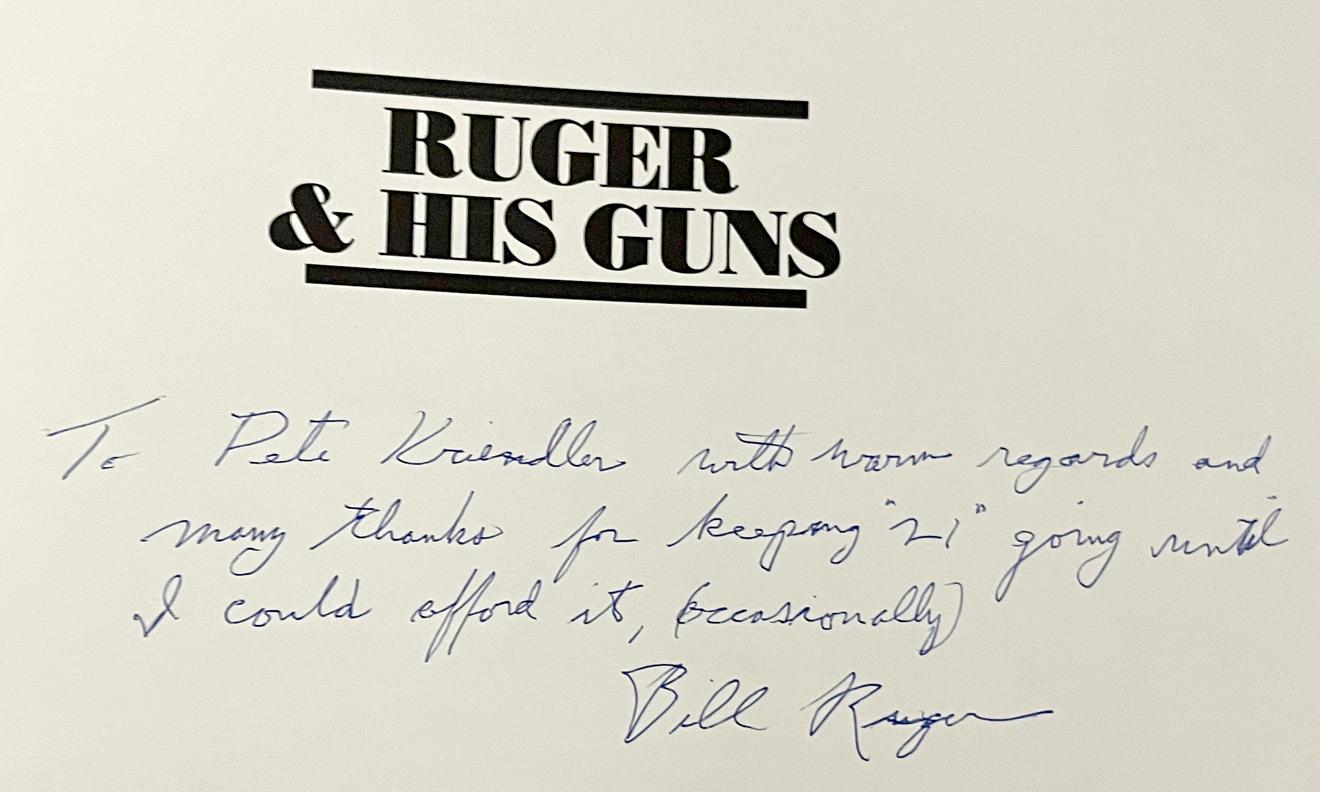 RUGER
& HIS GUNS
To Pete Kriendler with warm regards and
many thanks for keeping "21" going until
I could afford it, (occasionally)
Bill Ruger